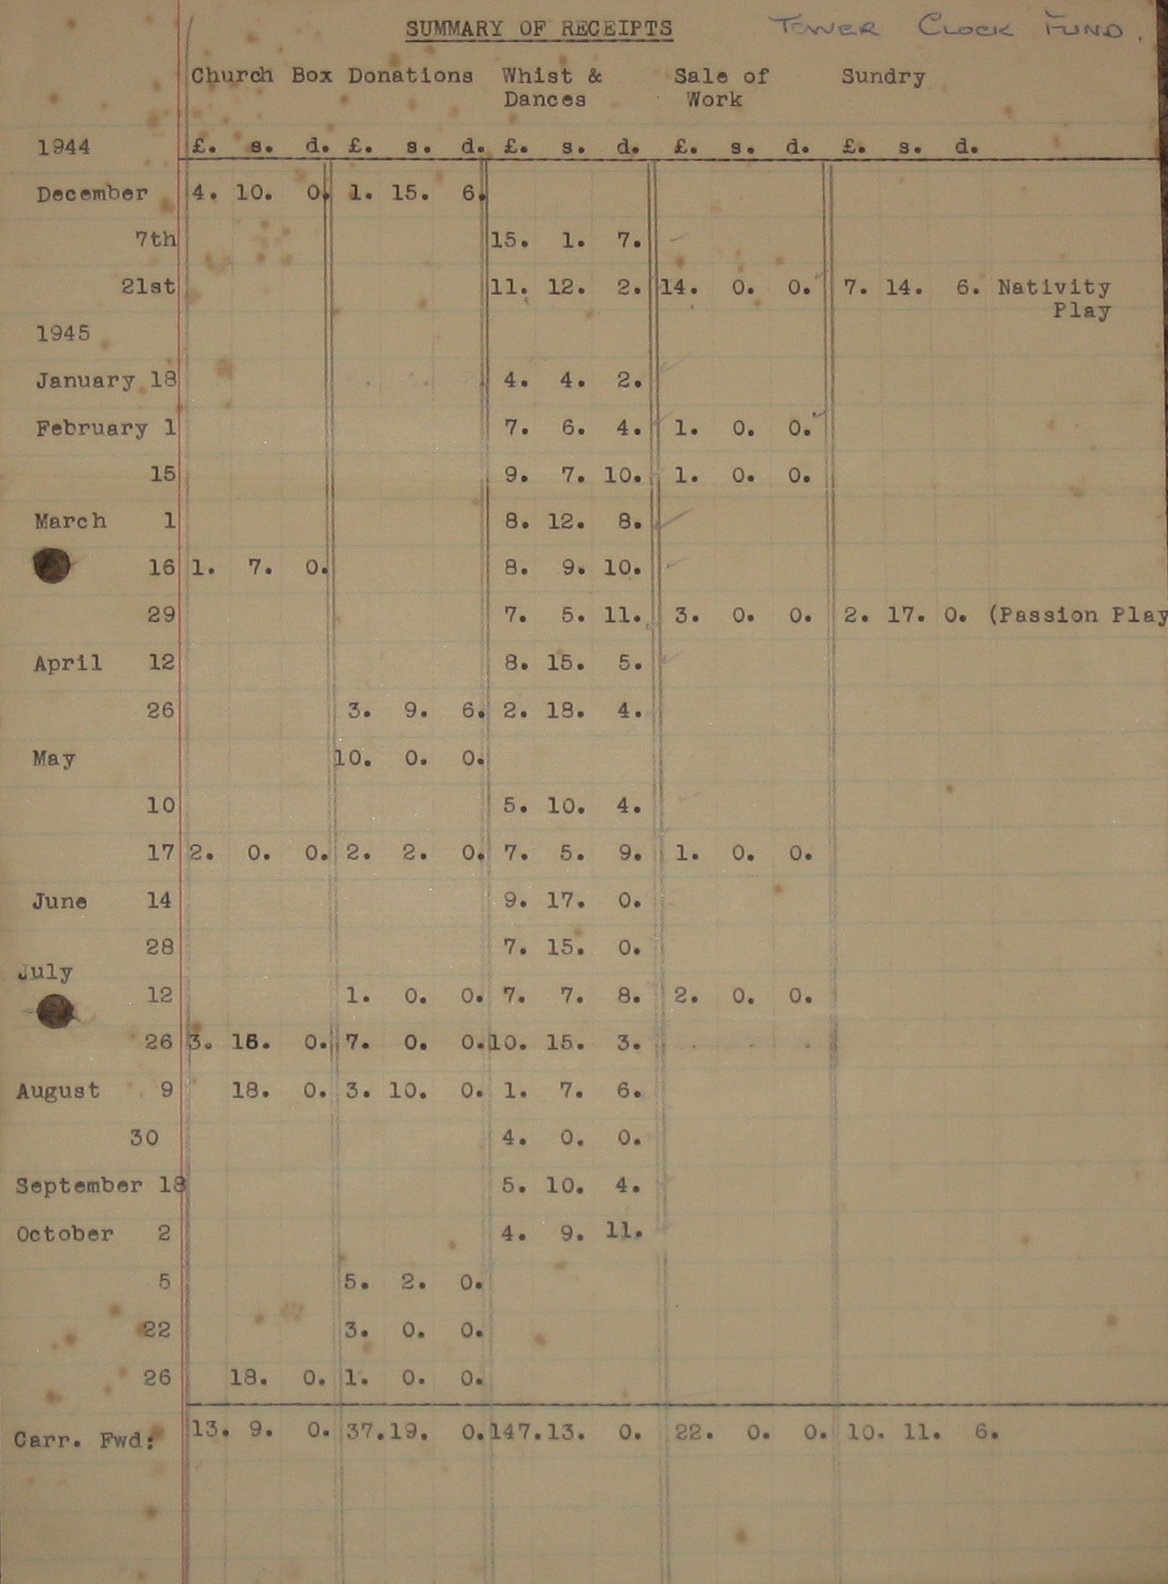 SUMMARY OF RECEIPTS TOWER CLOCK FUND.
Church Box Donations Whist & Sale of Sundry
Dances Work
1944 £. s. d. £. s. d. £. s. d. £. s. d. £. s. d.
December 4. 10. 0. 1. 15. 6.
7th 15. 1. 7.
21st 11. 12. 2. 14. 0. 0. 7. 14. 6. Nativity
Play
1945
January 18 4. 4. 2.
February 1 7. 6. 4. 1. 0. 0.
15 9. 7. 10. 1. 0. 0.
March 1 8. 12. 8.
16 1. 7. 0. 8. 9. 10.
29 7. 5. 11. 3. 0. 0. 2. 17. 0. (Passion Play
April 12 8. 15. 5.
26 3. 9. 6. 2. 18. 4.
May 10. 0. 0.
10 5. 10. 4.
17 2. 0. 0. 2. 2. 0. 7. 5. 9. 1. 0. 0.
June 14 9. 17. 0.
28 7. 15. 0.
July
12 1. 0. 0. 7. 7. 8. 2. 0. 0.
26 3. 16. 0. 7. 0. 0. 10. 15. 3.
August 9 18. 0. 3. 10. 0. 1. 7. 6.
30 4. 0. 0.
September 18 5. 10. 4.
October 2 4. 9. 11.
5 5. 2. 0.
22 3. 0. 0.
26 18. 0. 1. 0. 0.
Carr. Fwd: 13. 9. 0. 37.19. 0. 147.13. 0. 22. 0. 0. 10. 11. 6.